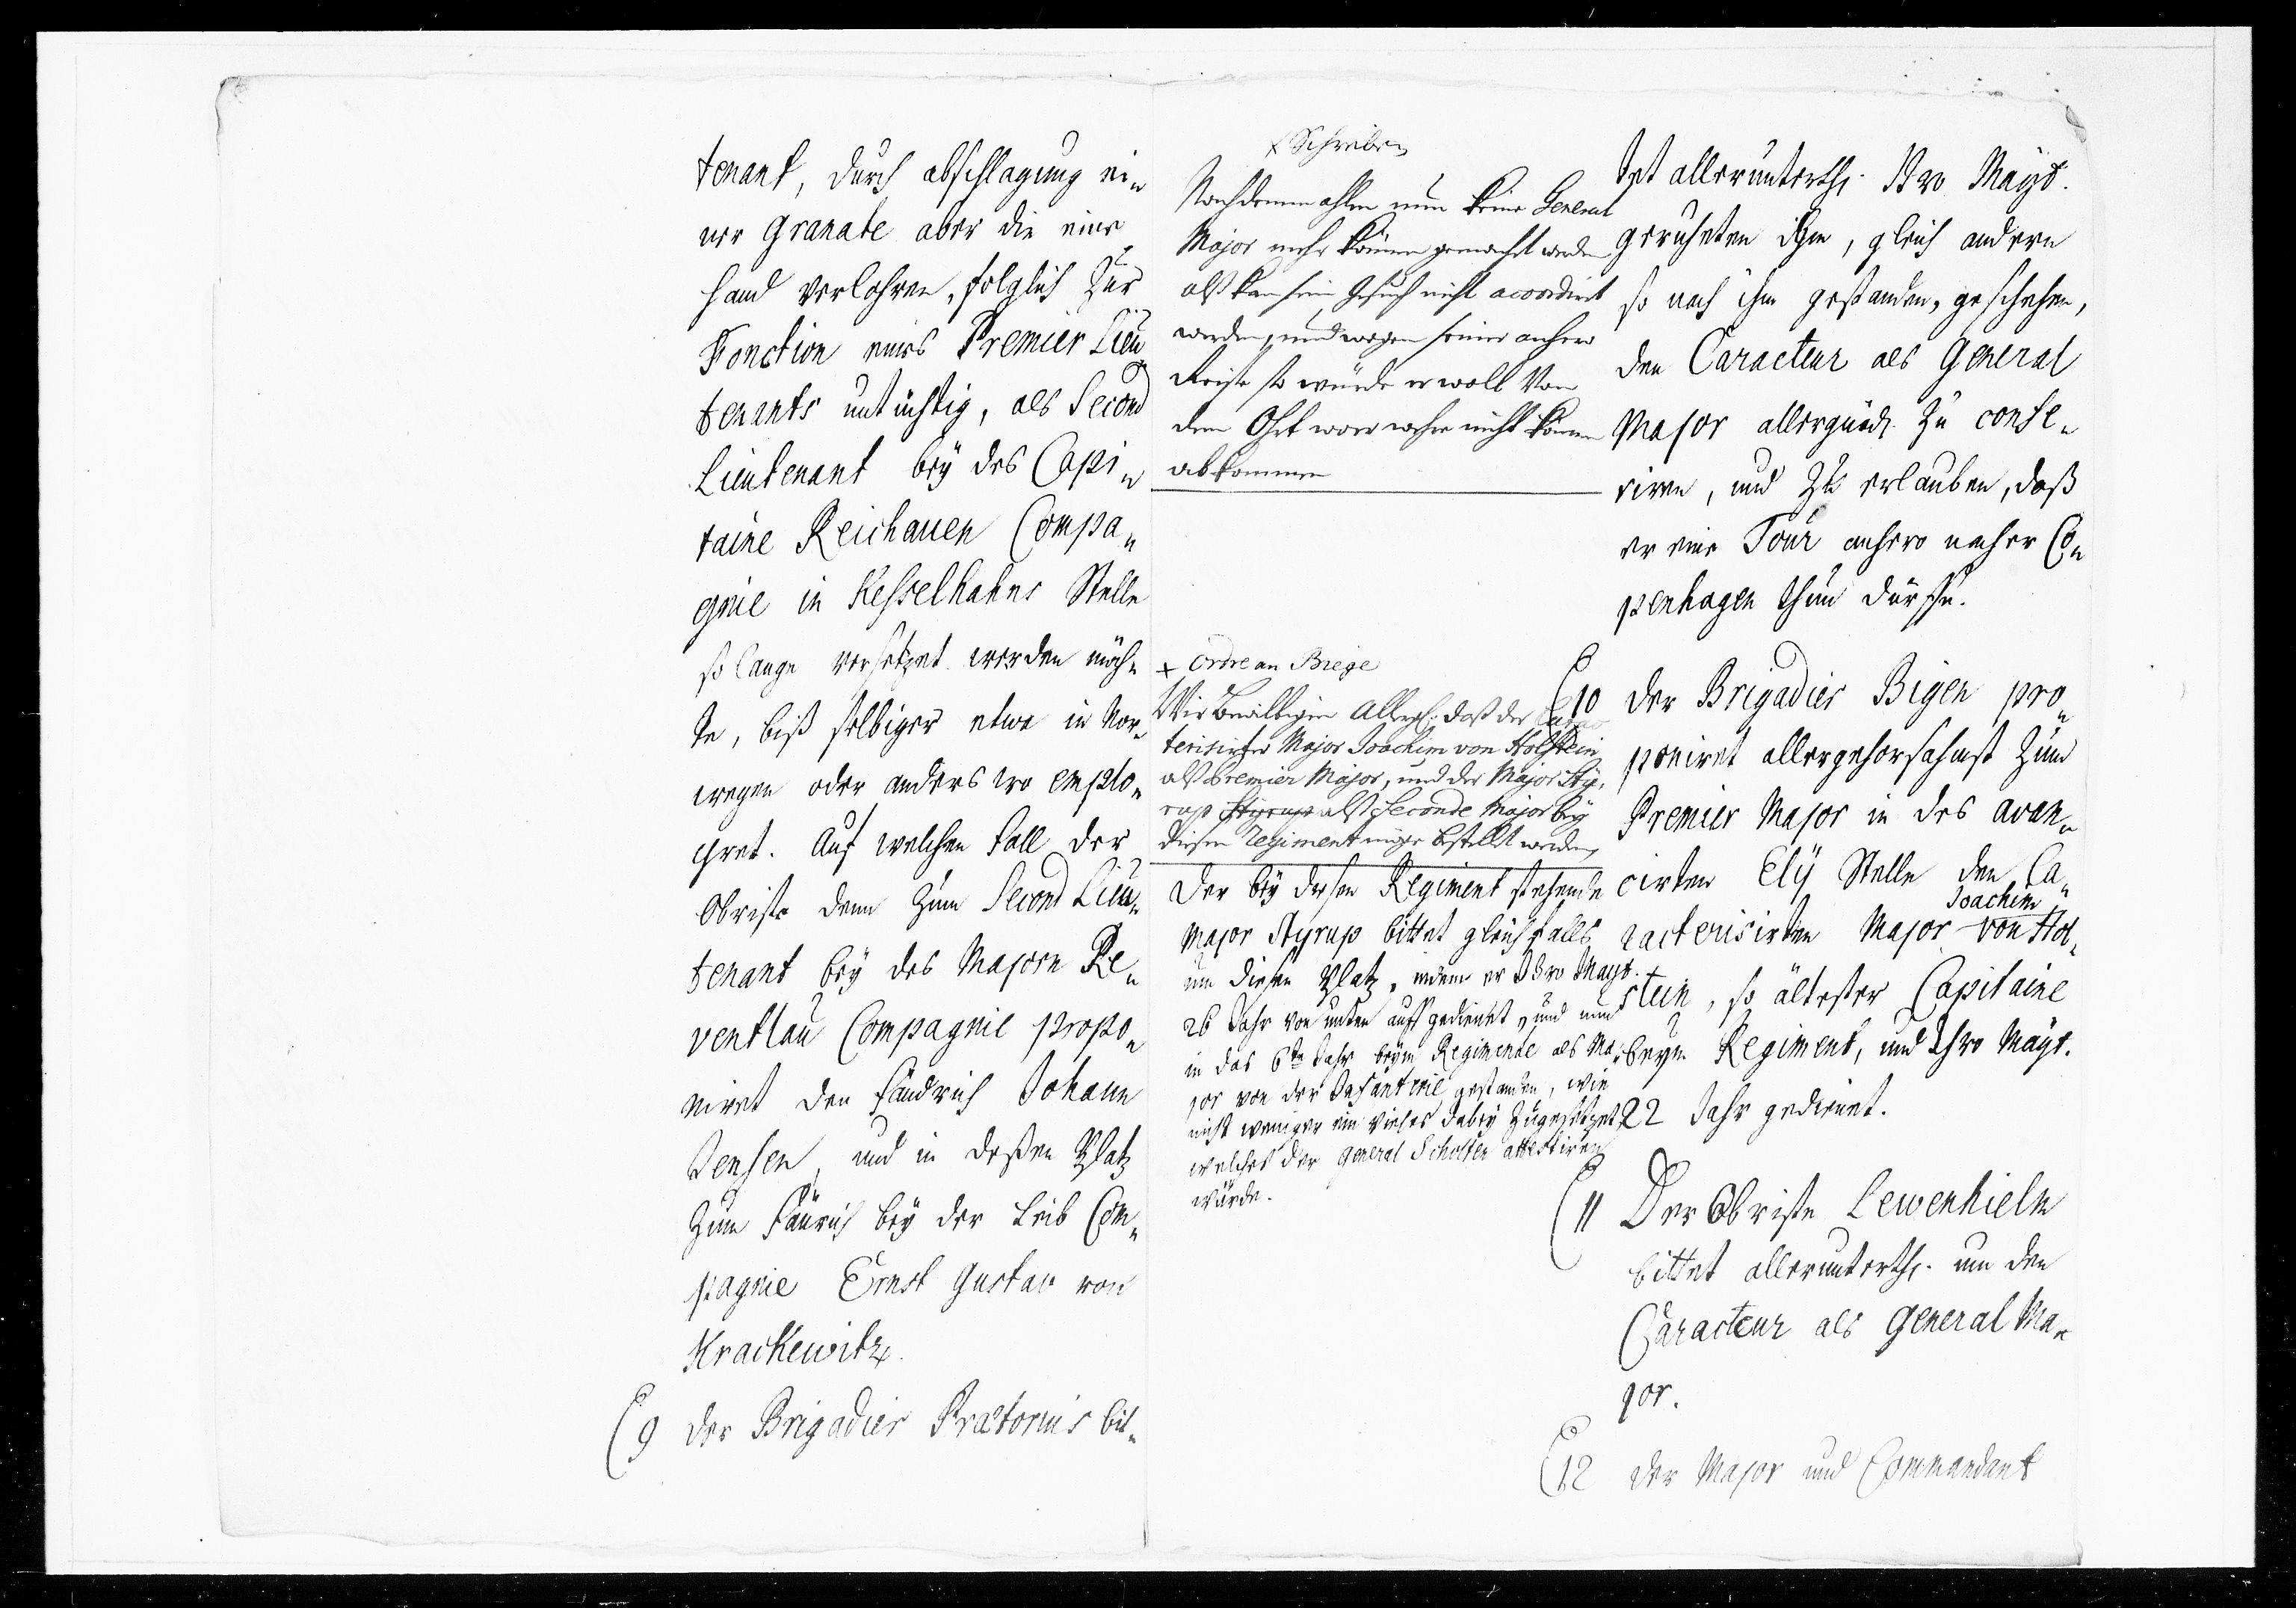 tenant, durch abschlagung ei-
ner Granate aber die eine
Hand verlohren, folglich zur
Fonction eines Premier Lieu-
tenants untüchtig, als Second
Lieutenant bey des Capi-
taine Reichauen Compa-
gnie in Kesselhahns Stelle
so lange versetzet werden möch-
te, biß selbiger etwa in Nor-
wegen oder anders wo emplo-
yret. Auf welchen Fall der
Obriste denn zum Second Lieu-
tenant bey des Majorn Re-
ventlau Compagnie propo-
niret den Fändrich Johann
Jensen, und in deßen Platz
zum Fänrich bey der Leib Com-
pagnie Ernst Gustav von
Krackewitz.
9 Der Brigadier Prætorius bit-
+ Schreiben
Nachdemmahlen nun keine General
Major mehr können gemacht werden
alß kan sein Gesuch nicht accordiret
werden, und wegen seiner anhero
Reise so würde er woll von
dem Ohrt woer wehre nicht können
abkommen
+ Ordre an Biege
Wir Bewilligen Allergn: daß der Carac
terisirter Major Joachim von Holstein
alß Premier Major, und der Major Sty-
rup Styrup alß Seconde Major bey
diesen Regiment möge bestellet werden,
Der bey desen Regiment stehende
Major Styrup bittet gleichfalls
um diesen Platz, indem er Ihro Mayt.
26 Jahr von unten auff gedienet, und nun
in das 6te Jahr beym Regimente als Ma-
jor von der Infanterie gestanden, wie
nicht weniger ein vieles dabey zugesetzet,
welches der General Scholten attestiren
würde.
tet allerunterth. Ihro Mayt.
geruheten ihm, gleich andern
so nach ihm gestanden, geschehen,
den Caracteur als General
Major allergnäd. zu confe-
riren, und zu erlauben, daß
er eine Tour anhero nacher Co-
penhagen thun dürffe.
10 Der Brigadier Bigen pro-
poniret allergehorsahmst zum
Premier Major in des avan-
cirten Ely Stelle den Ca-
racterisirten Major Joachim von Hol-
stein, so ältester Capitaine
beym Regiment, und Ihro Mayt.
22 Jahr gedienet.
11 Der Obriste Lewenhielm
bittet allerunterth. um den
Caracteur als General Ma-
jor.
12 Der Major und Commandant